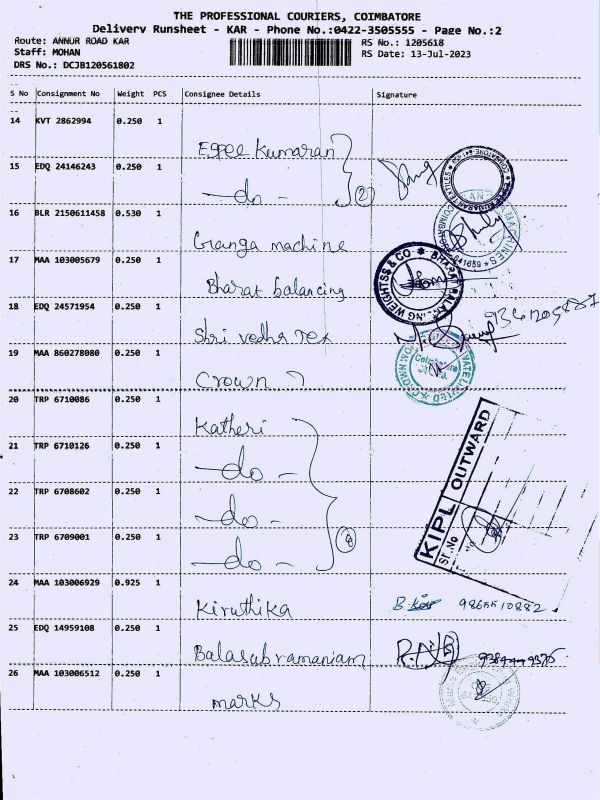 THE PROFESSIONAL COURIERS, COIMBATORE
Delivery Runsheet - KAR - Phone No.:0422-3505555 - Page No.:2
Route: ANNUR ROAD KAR
RS No.: 1205618
Staff: MOHAN
RS Date: 13-Jul-2023
DRS No.: DCJB120561802
S No Consignment No Weight PCS Consignee Details Signature
14 KVT 2862994 0.250 1
Esgee Kumaran
15 EDQ 24146243 0.250 1
-do- 2
16 BLR 2150611458 0.530 1
Ganga machine
17 MAA 103005679 0.250 1
Bharat balancing
BHARAT BALANCING WEIGHTSS & CO
18 EDQ 24571954 0.250 1
Shri vedha Tex
19 MAA 860278080 0.250 1
Crown
20 TRP 6710086 0.250 1
Katheri
21 TRP 6710126 0.250 1
-do-
22 TRP 6708602 0.250 1
-do-
23 TRP 6709001 0.250 1
-do- 4
KIPL OUTWARD
Sr.No
24 MAA 103006929 0.925 1
Kiruthika
25 EDQ 14959108 0.250 1
Balasubramaniam
26 MAA 103006512 0.250 1
marks